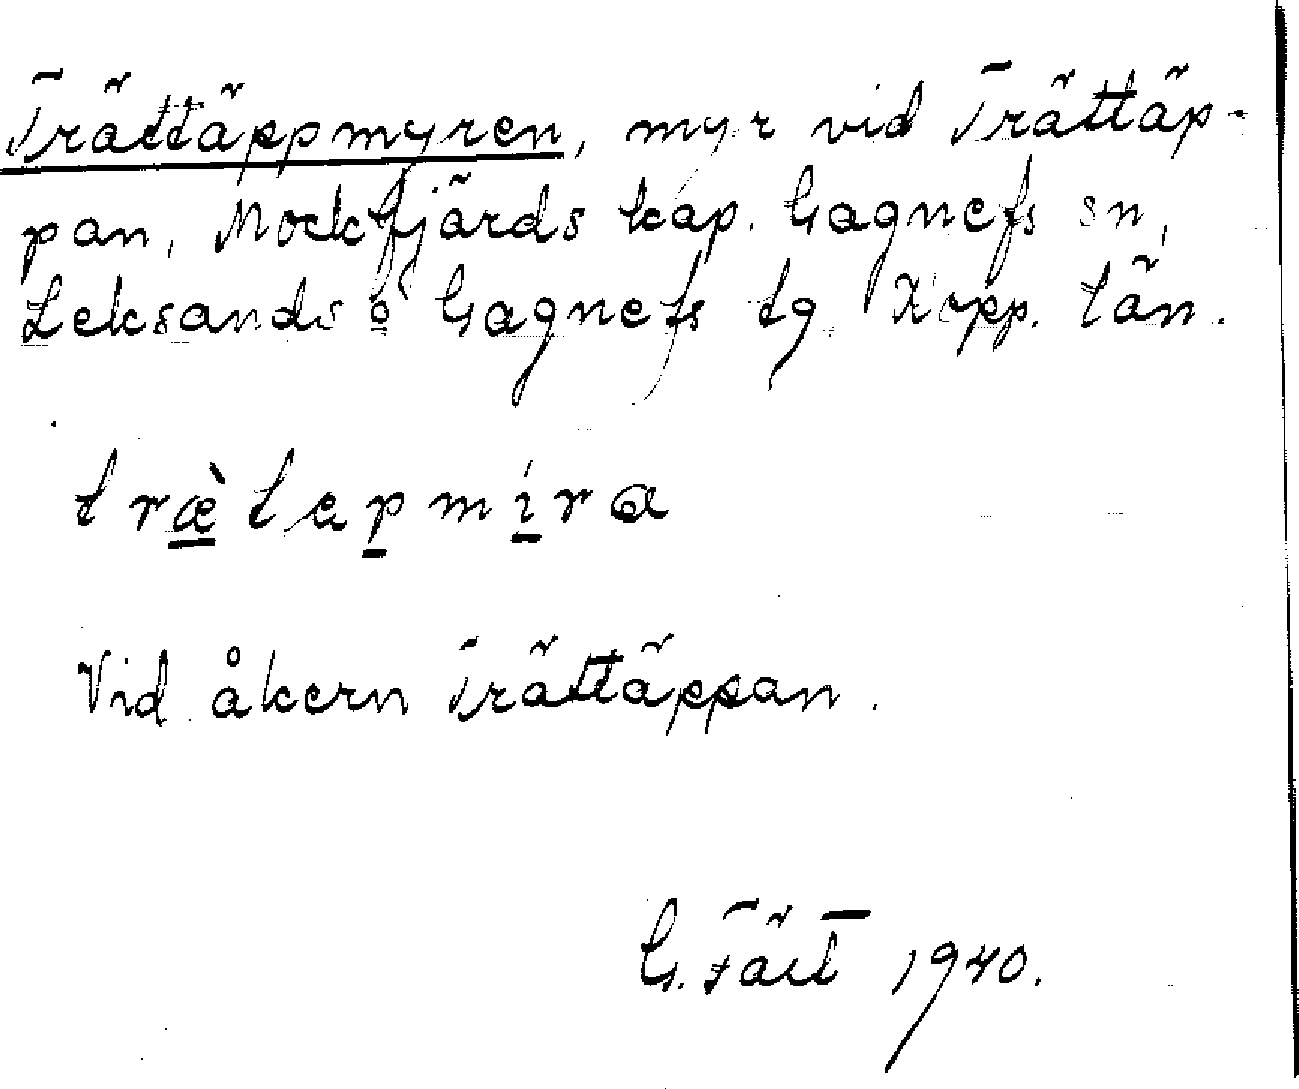 Trättäppmyren, myr vid Trättäp-
pan, Mockfjärds kap. Gagnefs sn,
Leksands o Gagnefs tg. Kopp. län.
træ̀tapmíra
Vid åkern Trättäppan.
G. Fält 1940.